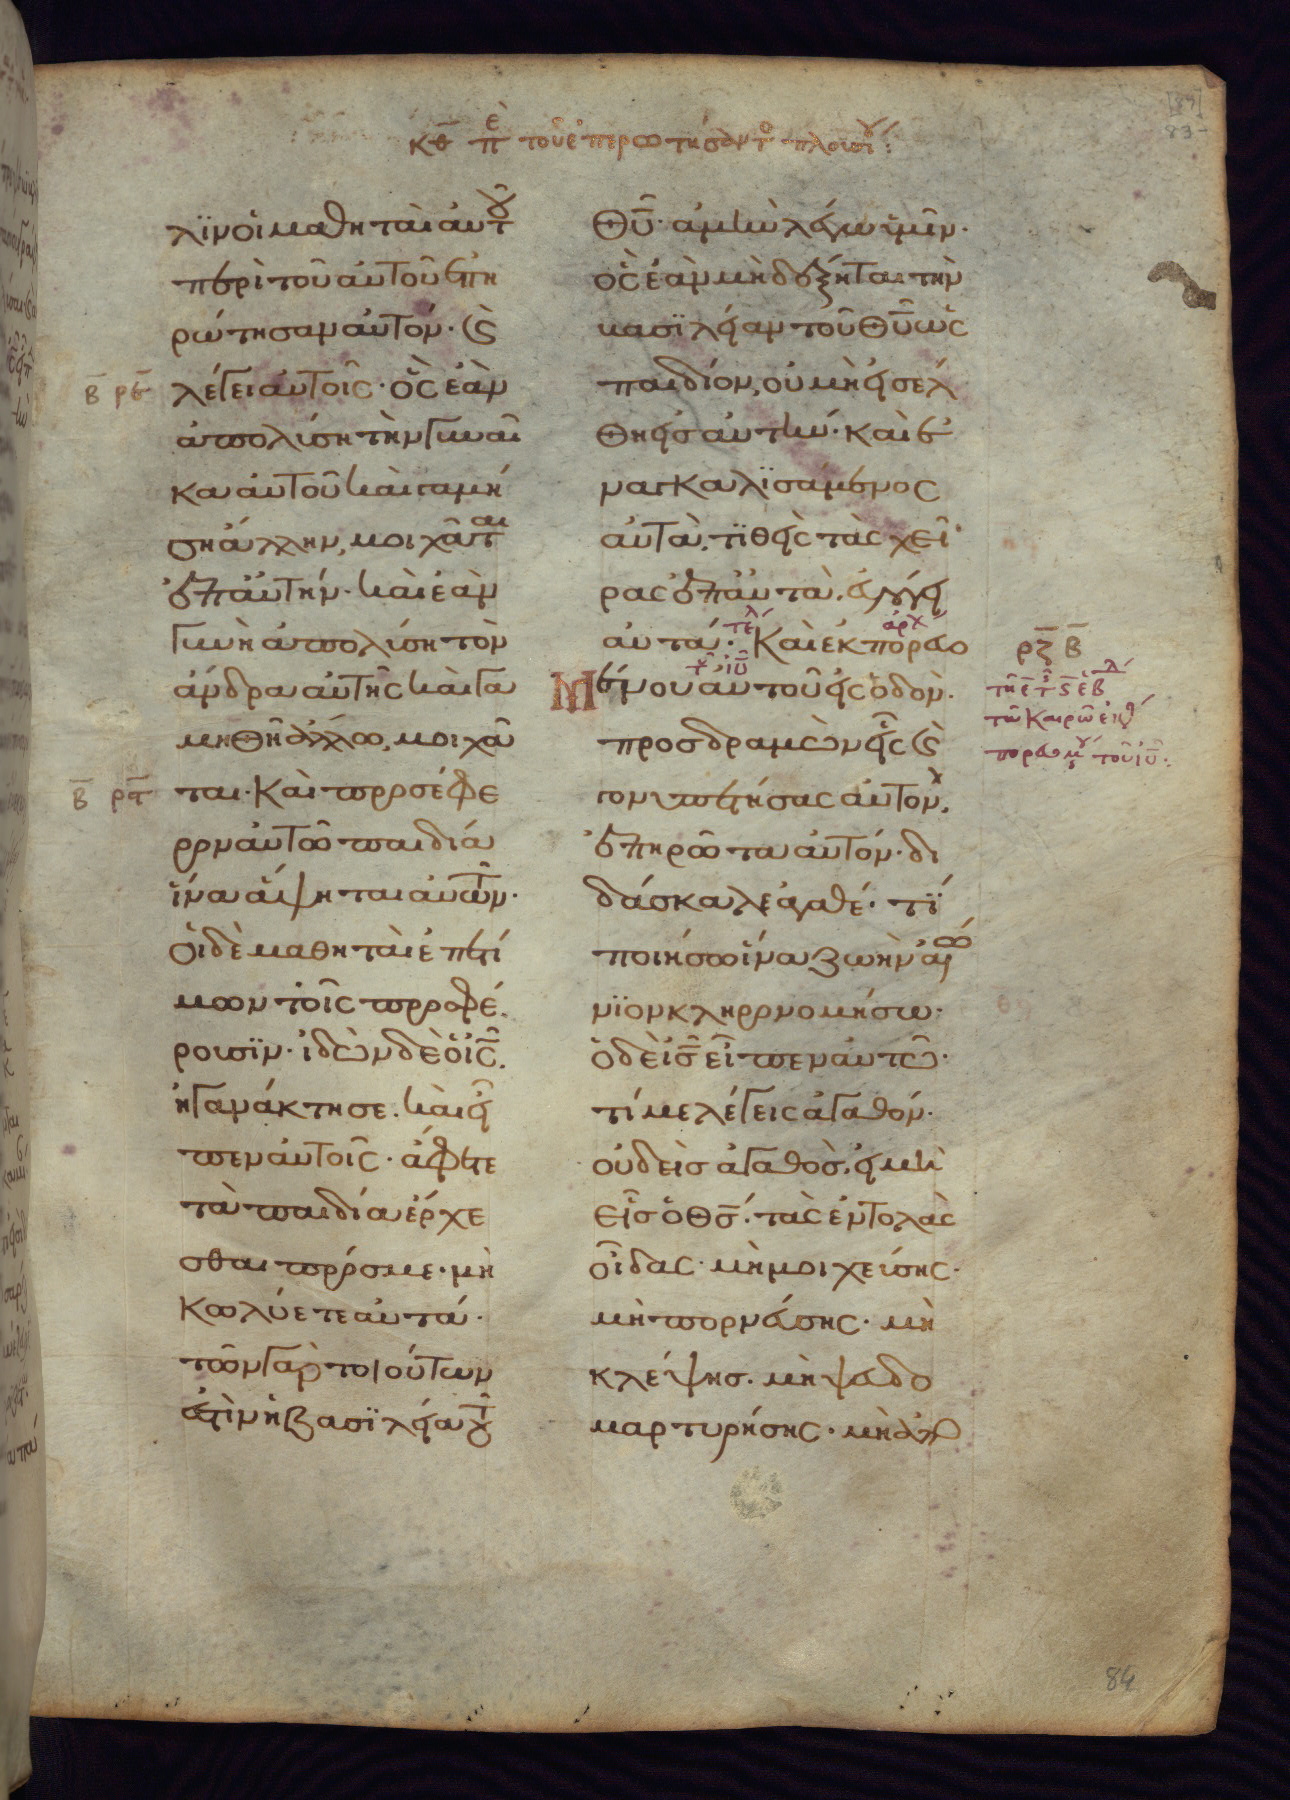 κθ πε τοῦ ἐπερωτήσαντο πλουσίου:
λϊν οἱ μαθηταὶ αὐτοῦ
περὶ τοῦ αὐτοῦ ἐπη
ρώτησαν αὐτόν· καὶ
β ρε λέγει αὐτοῖς· ὃς ἐὰν
ἀπολύση τὴν γυναῖ
κα αὐτοῦ καὶ γαμή
ση ἄλλην, μοιχᾶται
ἐπ' αὐτήν· καὶ ἐὰν
γυνὴ ἀπολύση τὸν
ἄνδρα αὐτῆς καὶ γα
μηθῆ ἄλλω, μοιχᾶ
β ρϛ ται· Καὶ προσέφε
ρον αὐτῶ παιδία
ἵνα ἅψηται αὐτῶν·
οἱ δὲ μαθηταὶ ἐπετί
μων τοῖς προσφέ
ρουσϊν· ἰδὼν δὲ ὁ ις
ἠγανάκτησε. καὶ εἶ
πεν αὐτοῖς· ἄφετε
τὰ παιδία ἔρχε
σθαι πρός με· μὴ
κωλύετε αὐτά·
τῶν γὰρ τοιούτων
ἐστὶν ἡ βασϊλεία τοῦ
θυ· ἀμὴν λέγω ὑμῖν·
ὃς ἐὰν μὴ δέξηται τὴν
βασϊλείαν τοῦ θυ ὡς
παιδίον, οὐ μὴ εἰσέλ
θη εἰς αὐτήν· καὶ ἐ
ναγκαλϊσάμενος
αὐτὰ, τϊθεὶς τὰς χεῖ
ρας ἐπ' αὐτὰ. εὐλόγει
αὐτά· τελ Καὶ ἐκπορευο αρχ
ρζ β
Μένου αὐτοῦ εἰς ὁδὸν. + ιυ
προσδραμὼν εἷς καὶ
γονυπετήσας αὐτον,
ἐπηρῶτα αὐτόν· δι
δάσκαλε ἀγαθέ· τϊ
ποιήσω ἵνα ζωὴν αἰω
νϊον κληρονομήσω·
ὁ δὲ ις εἶπεν αὐτῶ·
τί με λέγεις ἀγαθόν·
οὐδεὶς ἀγαθὸς. εἰ μὴ
εἷς ὁ θς. τὰς ἐντολὰς
οἶδας· μὴ μοιχεύσης·
μὴ πορνεύσης· μὴ
κλέψης. μὴ ψευδο
μαρτυρήσης· μὴ ἀπο
τῶ καιρῶ ἐκεί
πορευομένου τοῦ ιυ·
83
84